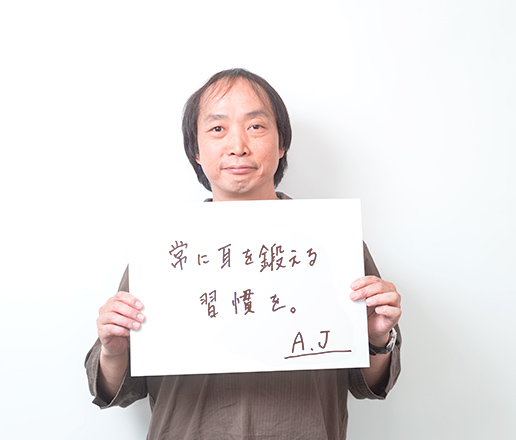 常に耳を鍛える
習慣を。
A.J